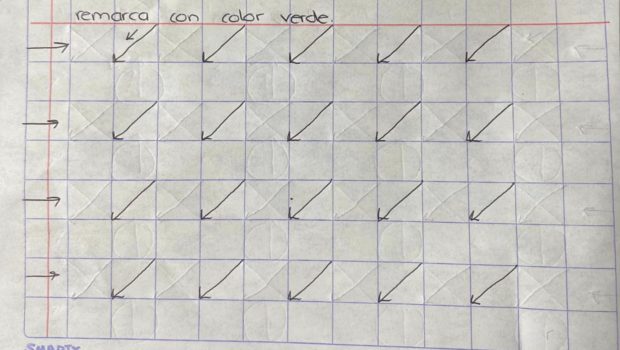 remarca con color verde.